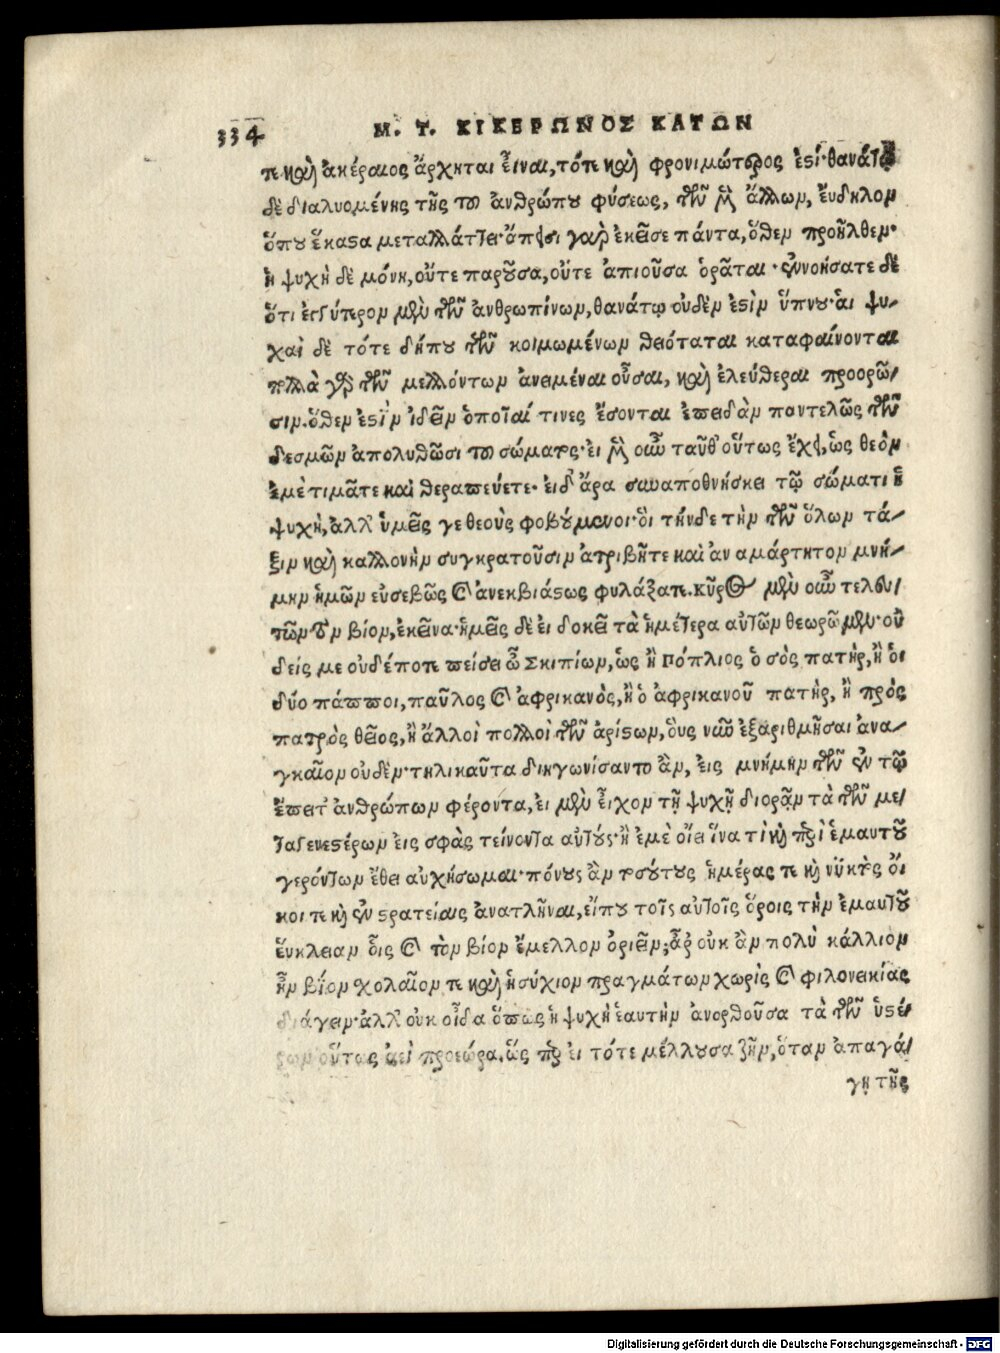 334 Μ. Τ. ΚΙΚΕΡΩΝΟΣ ΚΑΤΩΝ
τε καὶ ἀκέραιος ἄρχηται εἶναι, τότε καὶ φρονιμώτερος ἐστί· θανάτῳ
δὲ διαλυομένης τῆς τοῦ ἀνθρώπου φύσεως, τῶν μὲν ἄλλων, ἔυδηλον
ὅπου ἕκαστα μεταλλάττει· ἄπεισι γαρ ἐκεῖσε πάντα, ὅθεν προῆλθεν·
ἡ ψυχὴ δὲ μόνη, οὔτε παροῦσα, οὔτε ἀπιοῦσα ὁρᾶται· ἐννοήσατε δὲ
ὅτι ἐγγύτερον μὲν τῶν ἀνθρωπίνων, θανάτῳ οὐδὲν ἐστὶν ὕπνου· ἁι ψυ-
χαὶ δὲ τότε δήπου τῶν κοιμωμένων θειόταται καταφαίνονται
πολλὰ γὰρ τῶν μελλόντων ἀνειμέναι οὖσαι, καὶ ἐλεύθεραι προορῶ-
σιν. ὅθεν ἐστὶν ἰδεῖν ὁποῖαί τινες ἔσονται ἐπειδὰν παντελῶς τῶν
δεσμῶν ἀπολυθῶσι τοῦ σώματος· ἐι μὲν οὖν ταῦθ' οὕτως ἔχει, ὡς θεὸν
ἐμὲ τιμᾶτε καὶ θεραπεύετε· ἐιδ' ἄρα συναποθνήσκει τῷ σώματι ἡ
ψυχὴ, ἀλλ' ὑμεῖς γε θεοὺς φοβούμενοι· ὁι τήνδε τὴν τῶν ὅλων τά-
ξιν καὶ καλλονὴν συγκρατοῦσιν ἀτριβῆτε καὶ ἀν αμάρτητον μνή-
μην ἡμῶν εὐσεβῶς καὶ ἀνεκβιάστως φυλάξατε. κῦρος μὲν οὖν τελευ-
τῶν τὸν βίον, ἐκεῖνα· ἡμεῖς δὲ ἐι δοκεῖ τὰ ἡμέτερα αὐτῶν θεωρῶμεν· οὐ
δείς με οὐδέποτε πείσει ὦ Σκιπίων, ὡς ἢ Πόπλιος ὁ σὸς πατὴρ, ἢ ὁι
δύο πάπποι, παῦλος καὶ ἀφρικανὸς, ἢ ὁ ἀφρικανοῦ πατὴρ, ἢ πρὸς
πατρὸς θεῖος, ἢ ἄλλοὶ πολλοὶ τῶν ἀρίστων, ὅυς νῦν ἐξαριθμῆσαι ἀνα-
γκαῖον οὐδὲν· τηλικαῦτα διηγωνίσαντο ἂν, ἐις μνήμην τῶν ἐν τῷ
ἔπειτ' ἀνθρώπων φέροντα, ἐι μὲν εἶχον τῇ ψυχῇ διορᾷν τὰ τῶν με-
ταγενεστέρων ἐις σφὰς τείνοντα αὐτούς· ἢ ἐμὲ οἴει ἵνα τὶ καὶ περὶ ἐμαυτοῦ
γερόντων ἔθει αὐχήσωμαι· πόνους ἂν τοσούτους ἡμέρας τε καὶ νύκτος ὅι
κοι τε καὶ ἐν στρατείαις ἀνατλῆναι, εἴπου τοῖς αὐτοῖς ὅροις τὴν ἐμαυτοῦ
ἔυκλειαν ὅις καὶ τὸν βίον ἔμελλον ὁριεῖν; ἆρ' οὐκ ἂν πολὺ κάλλιον
ἦν βίον χολαῖον τε καὶ ἡσύχιον πραγμάτων χωρὶς καὶ φιλονεικίας
διάγειν· ἀλλ' οὐκ οἶδα ὅπως ἡ ψυχὴ ἑαυτὴν ἀνορθοῦσα τὰ τῶν ὑστέ-
ρων οὕτως ἀεὶ προεώρα, ὥς περ ἐι τότε μέλλουσα ζῆν, ὅταν ἀπαγά-
γῃ τῆς
Digitalisierung gefördert durch die Deutsche Forschungsgemeinschaft - DFG